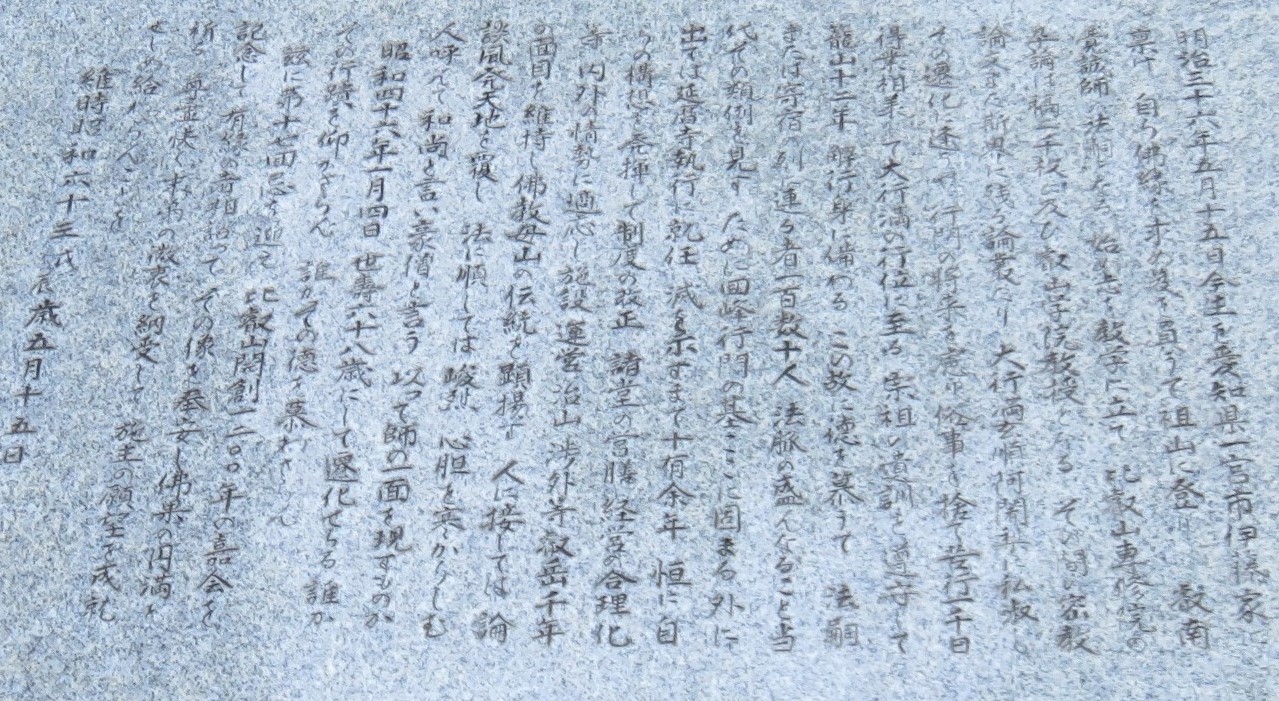 明治三十六年五月十五日今生を愛知県一宮市伊藤家
禀け 自ら佛縁を求め笈を負うて祖山に登り 叡南
覚誠師の法嗣となる 始め志を教学に立て 比叡山専修院の
卒論は稿一千枚に及び叡山学院教授となる その間に宗教
論文また斯界に残る論叢たり 大行満 順阿闍梨に私叔し
その遷化に逢うや行門の将来を憲い俗事を捨て苦行一千日
得業相承して大行満の行位に至る 宗祖の遺訓を遵守して
籠山十二年 解行身に備わる この故に徳を慕うて 法嗣
または宗宿の列に連る者一百数十人 法脈の盛んなること当
代その類例を見ず ために回峰行門の基ここに固まる 外に
出ては延暦寺執行に就任 滅を示すまで十有余年 恒に自
らの構想を発揮して制度の改正 諸堂の営膳 経営の合理化
等 内外の情勢に適応し 施設 運営 治山 渉外等 叡岳千年
の面目を維持し 佛教母山の伝統を顕揚す 人に接しては 論
談風発天地を覆し 法に順しては 峻烈 心胆を寒からしむ
人呼んで和尚と言い豪僧と言う 以って師の一面を現すものか
昭和四十六年一月四日 世寿六十八歳にして遷化せらる 誰か
その行蹟を仰がざらん 誰かその徳を慕わざらん
茲に第十七回忌を迎え 比叡山開創一二〇〇年の嘉会を
記念して 有縁の者相寄って その像を奉安し佛果の円満を
祈 尊霊快く の微衷を納受して 施主の願望を成就
せしめ給わらんことを
維時昭和六十三 辰歳五月十五日